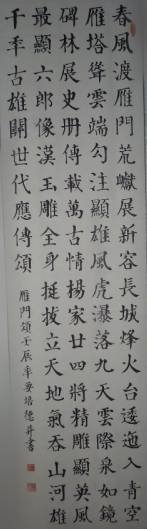 春風渡雁門荒巘展新容長城烽火台逶迤入青空
雁塔聳雲端勾注顯雄風虎瀑落九天雲際泉如鏡
碑林展史册傳載萬古情楊家廿四將精雕顯英風
最顯六郎像漢玉雕全身挺拔立天地氣吞山河雄
千年古雄關世代應傳頌
雁門頌壬辰年安培德并書